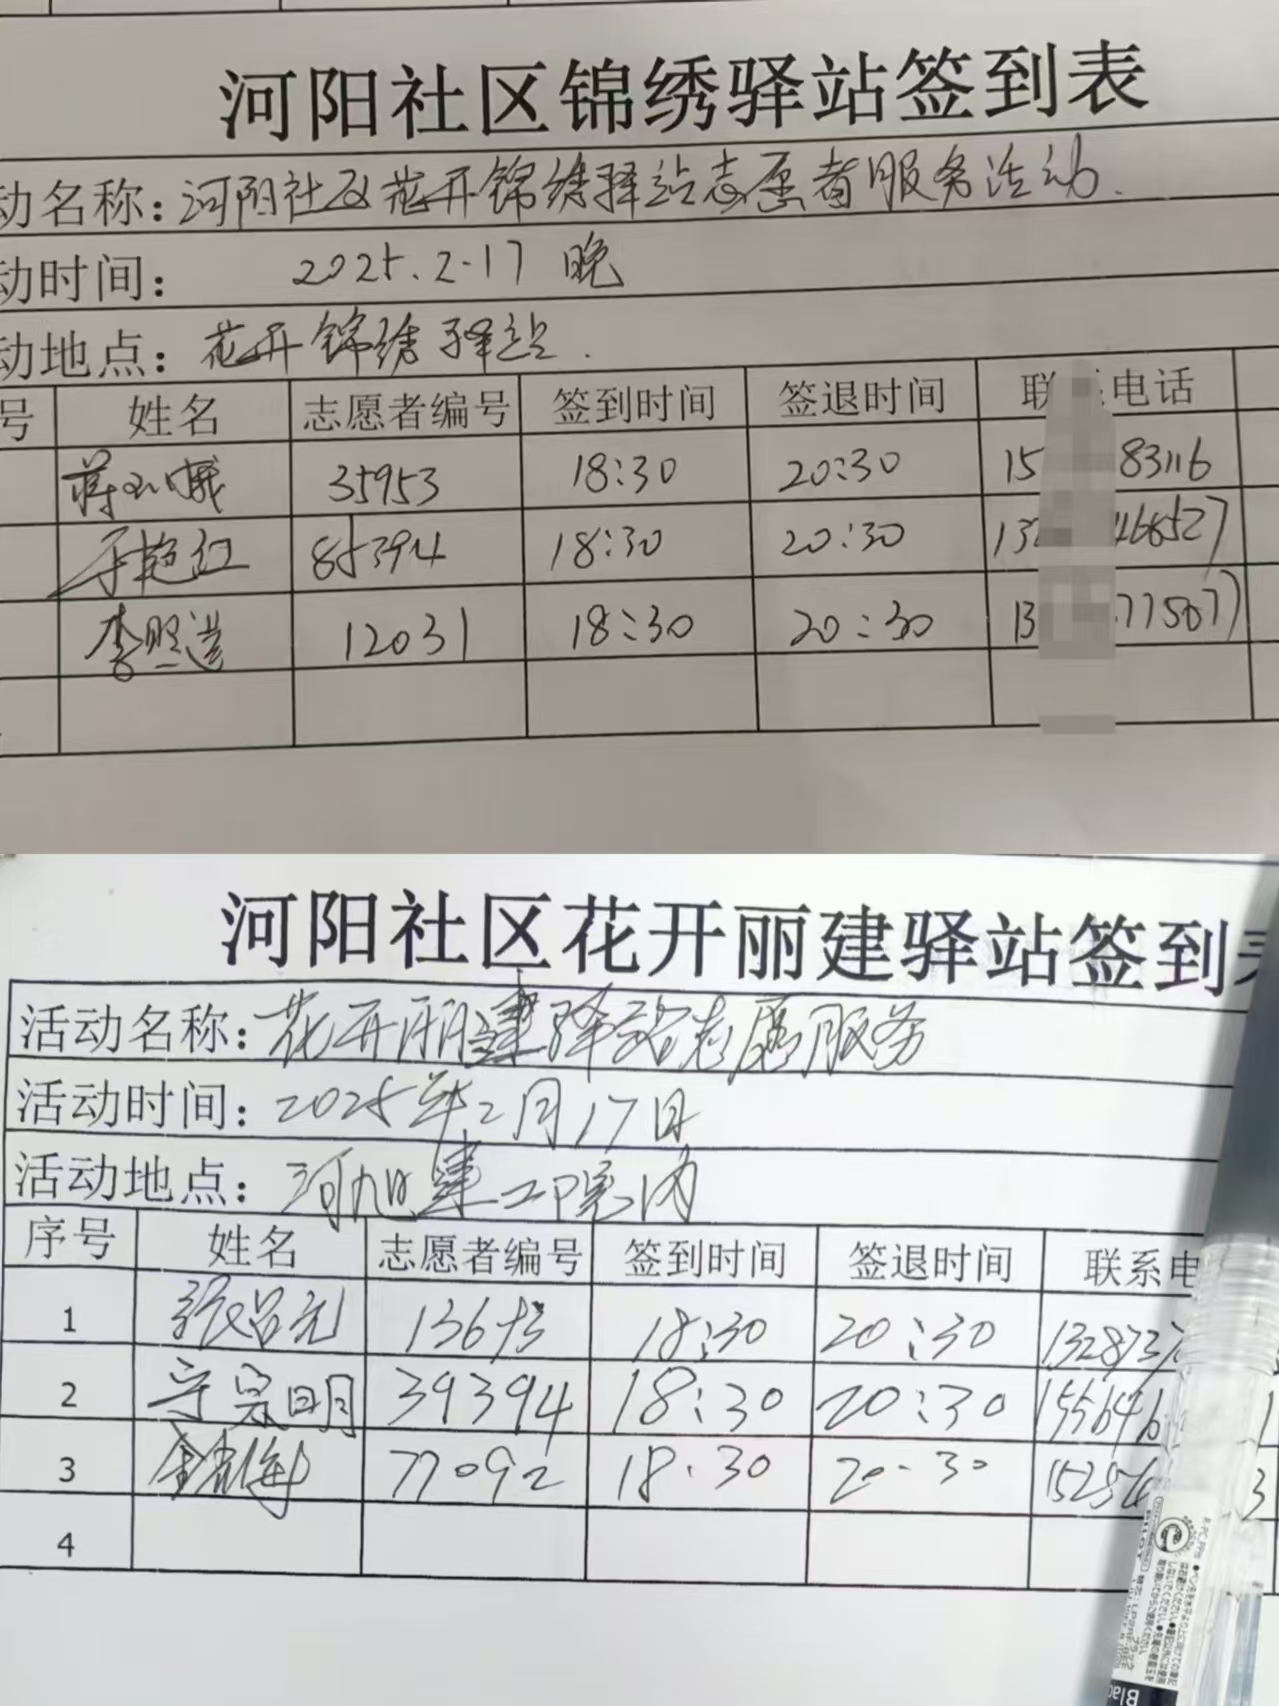 河阳社区锦绣驿站签到表
动名称：河阳社区花开锦绣驿站志愿者服务活动.
动时间： 2025.2.17 晚
动地点：花开锦绣驿站.
号 姓名 志愿者编号 签到时间 签退时间 联 电话
35953 18:30 20:30 15 83116
于艳红 85394 18:30 20:30 13 468527
李照进 12031 18:30 20:30 13 77507
河阳社区花开丽建驿站签到
活动名称：花开丽建驿站志愿服务
活动时间：2025年2月17日
活动地点：河旭建工院内
序号 姓名 志愿者编号 签到时间 签退时间 联系电
1 张吕元 18:30 20:30 132873
2 守宗明 39394 18:30 20:30 155646 1
3 77092 18.30 20-30 3
4